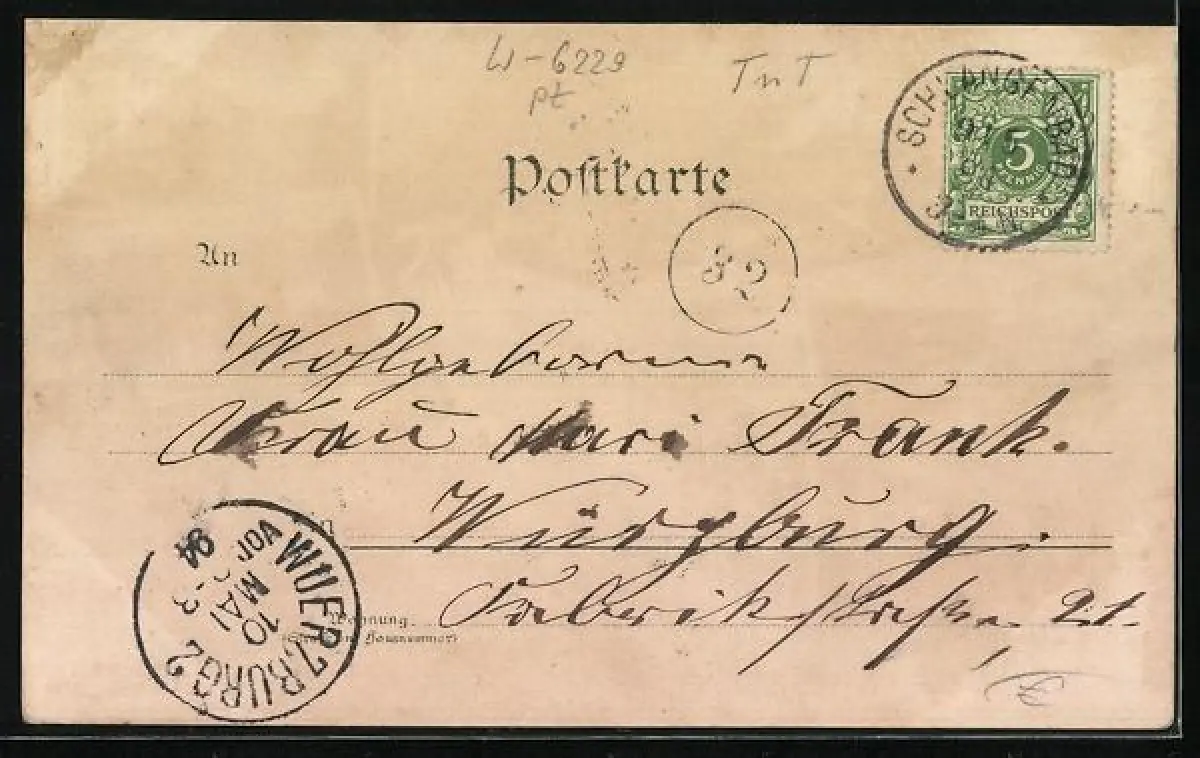 W-6229 TnT
pt
Postkarte
SCHLANGENBAD
5
PFENNIG
REICHSPOST
32
An
Wohlgeboren
Frau Mari Frank.
Würzburg.
Fabrikstraße 21.
Wohnung
(Straße und Hausnummer)
WUERZBURG 2
10
MAI
94